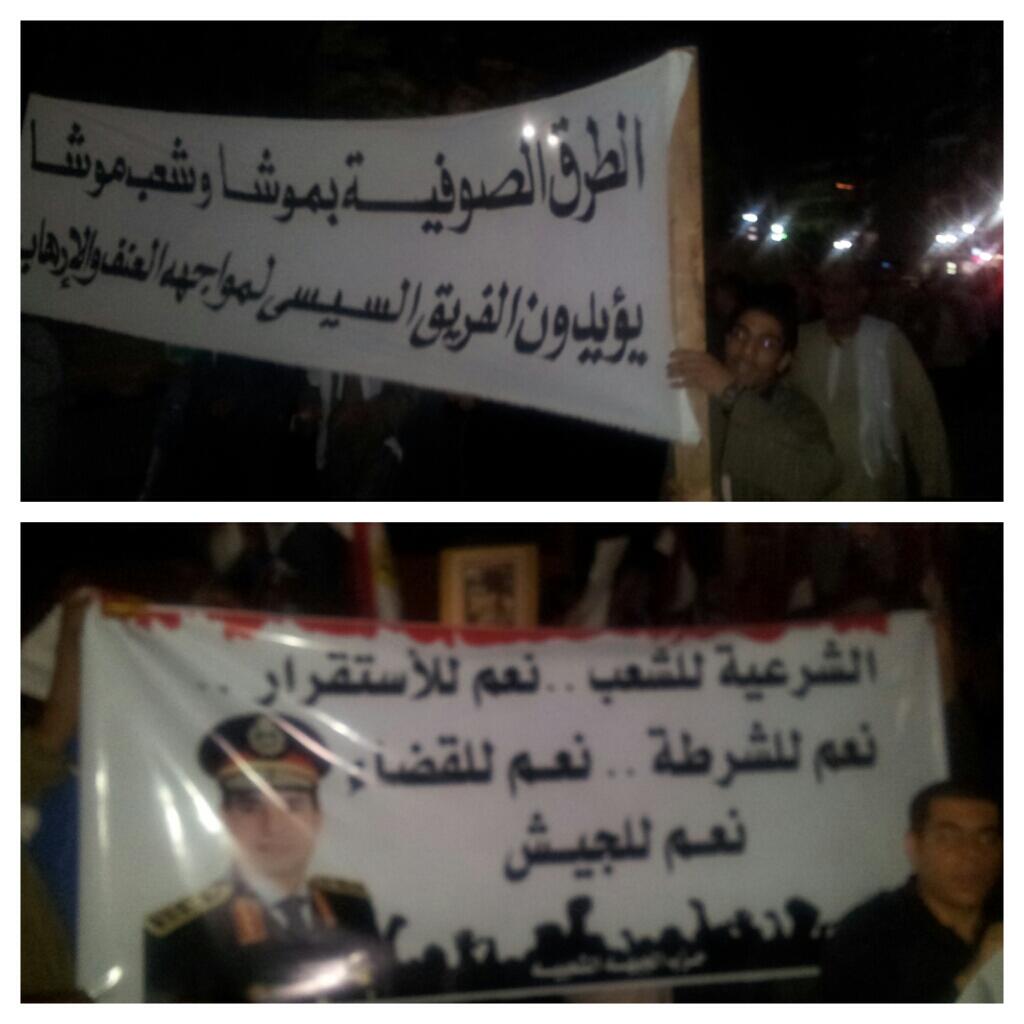 الطرق الصوفية بموشا وشعب موشا
يؤيدون الفريق السيسى لمواجهه العنف والإرهاب
الشرعية للشعب .. نعم للأستقرار ..
نعم للشرطة .. نعم للقضاء
نعم للجيش
حزب الجبهه الشعبيه